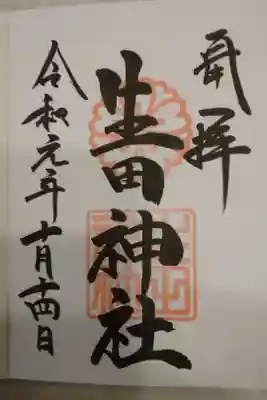 奉拝
生田神社
令和元年十月十四日